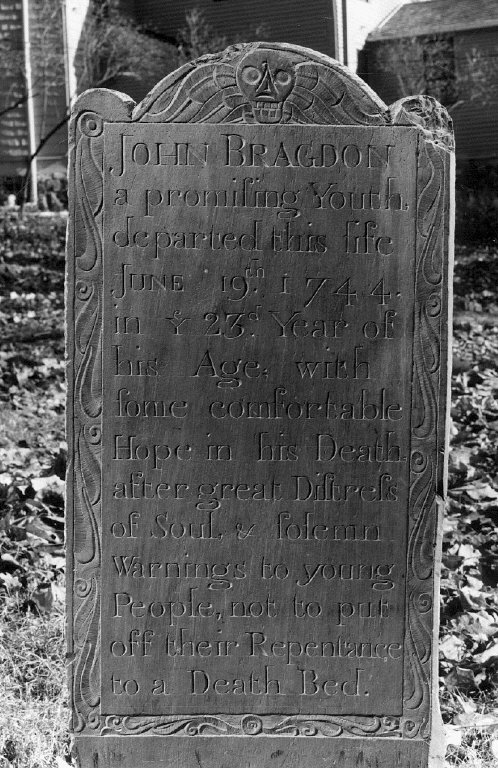 JOHN BRAGDON
a promiſing Youth,
departed this life
JUNE 19.th 1744.
in yͤ 23.d Year of
his Age, with
ſome comfortable
Hope in his Death,
after great Diſtreſs
of Soul, & ſolemn
Warnings to young
People, not to put
off their Repentance
to a Death Bed.